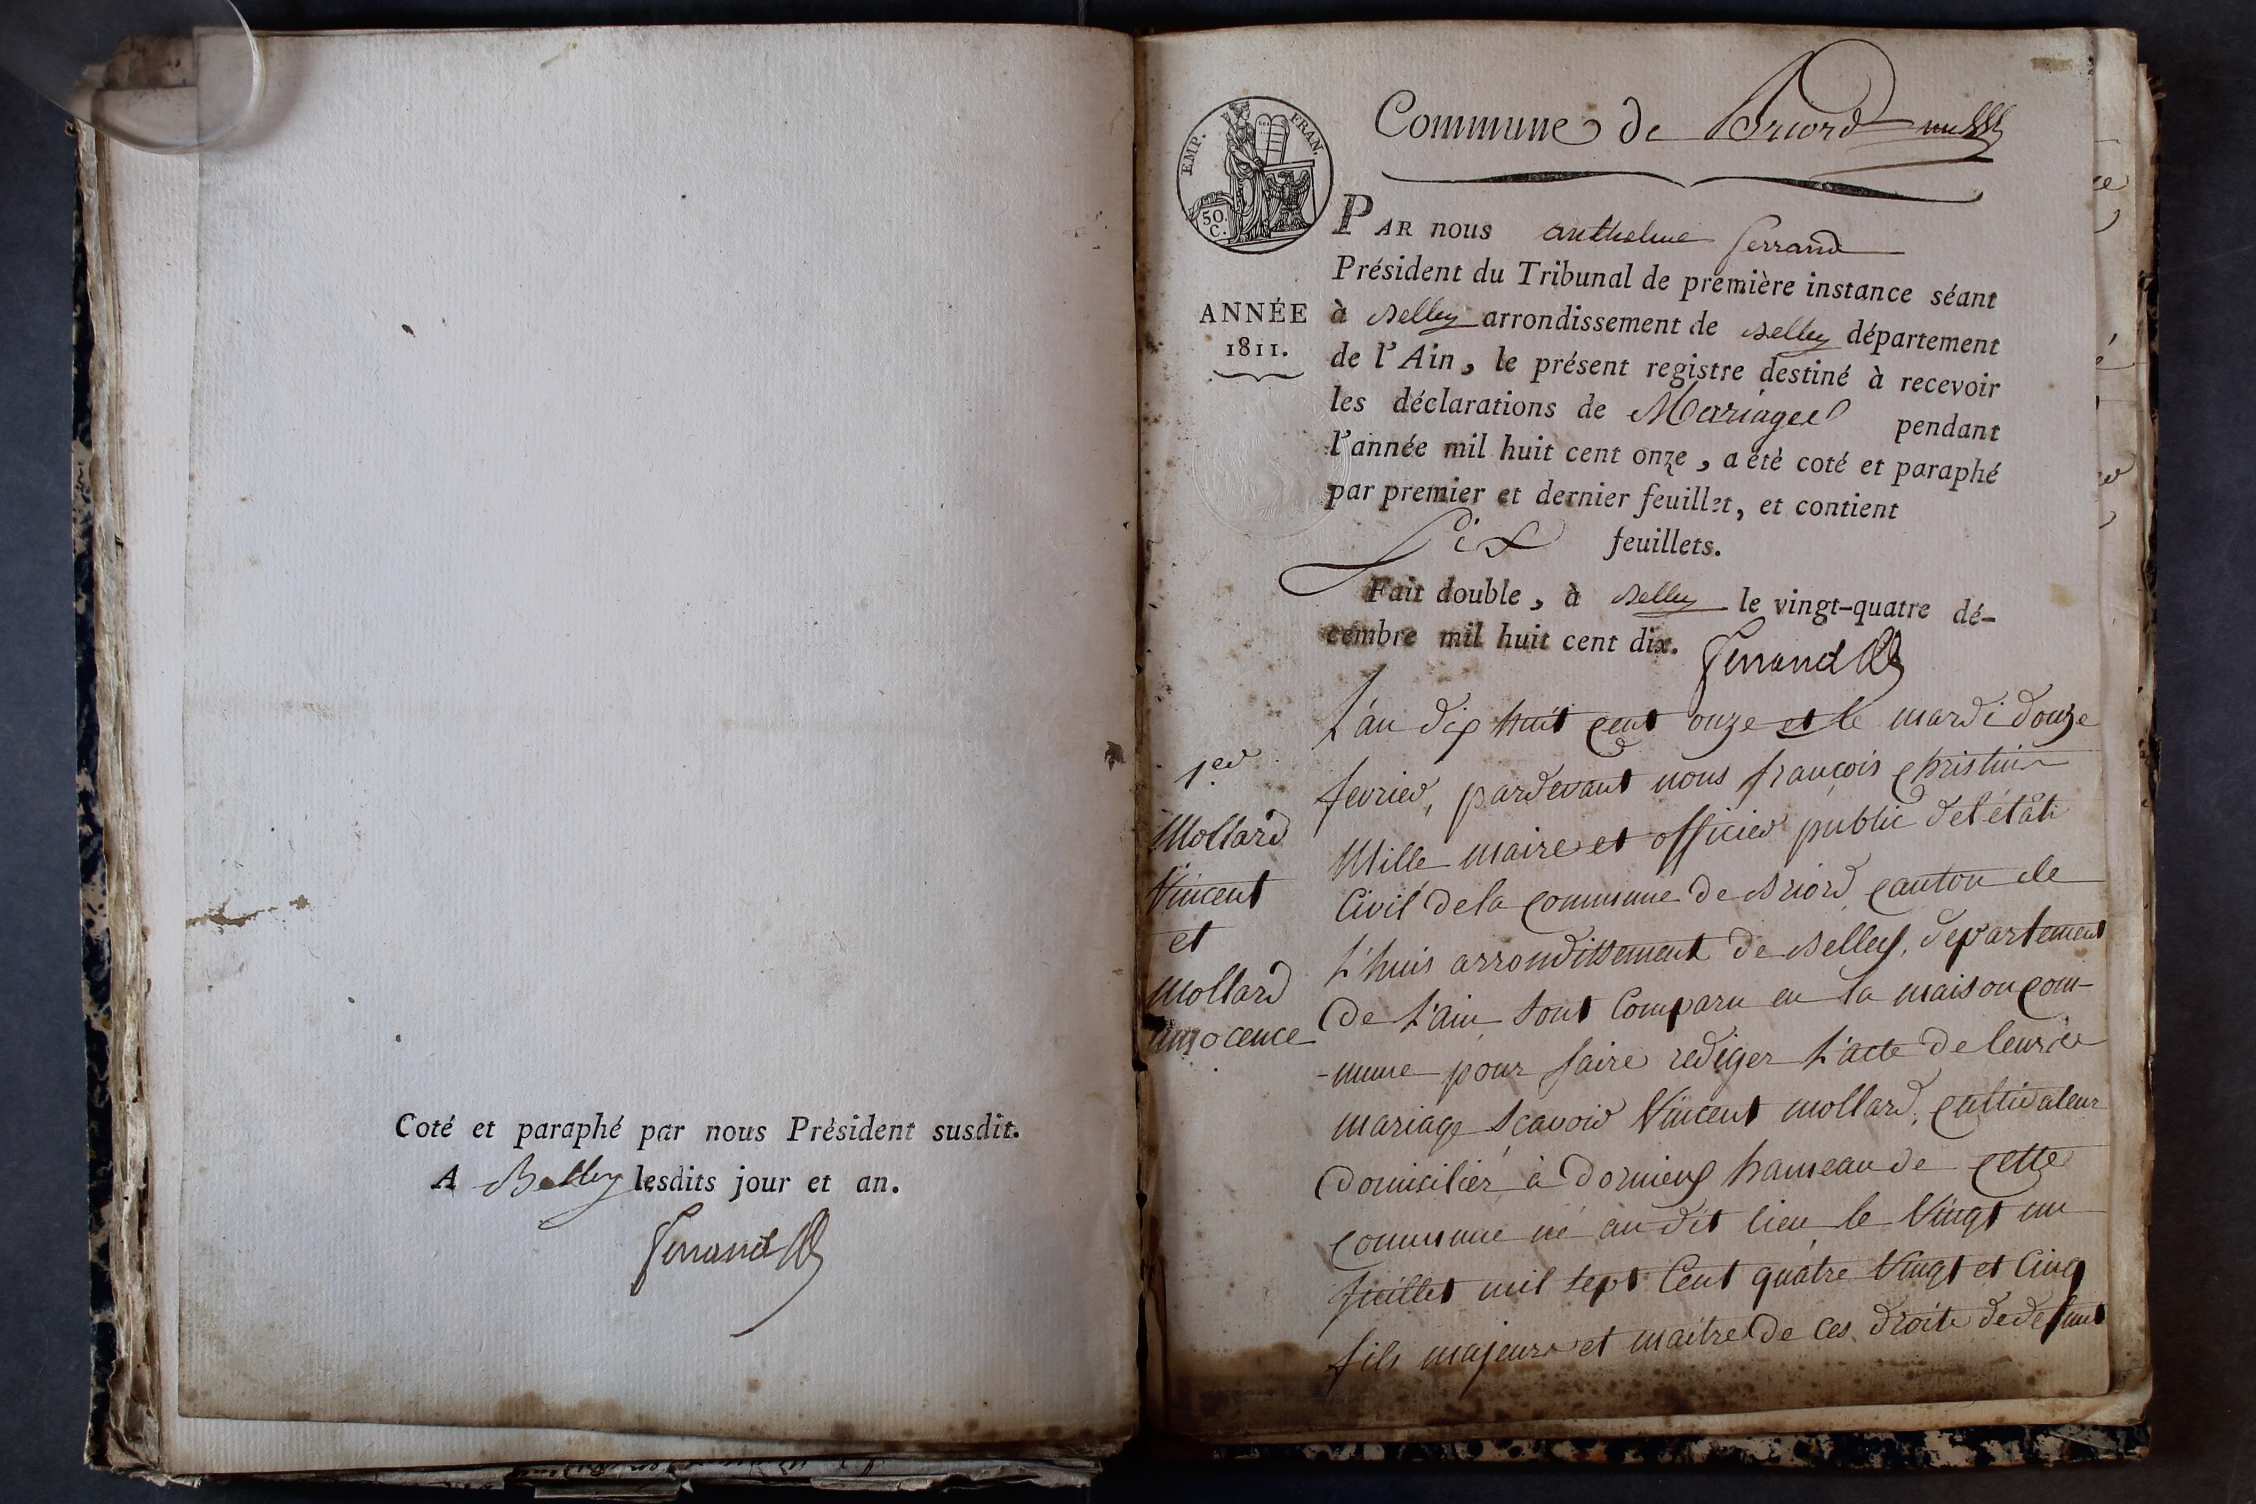 Coté et paraphé par nous Président susdit.
A Belley lesdits jour et an.
Ferrand
EMP. FRAN.
50.
C.
Commune de Briord
PAR nous anthelme ferrand
Président du Tribunal de première instance séant
ANNÉE
1811.
à Belley arrondissement de Belley département
de l'Ain, le présent registre destiné à recevoir
les déclarations de Mariages pendant
l'année mil huit cent onze, a été coté et paraphé
par premier et dernier feuillet, et contient
Six feuillets.
Fait double, à Belley le vingt-quatre dé-
cembre mil huit cent dix. Ferrand
1er
Mollard
Vincent
et
Mollard
innocence
L'an dix huit cent onze et le mardi douze
fevrier, pardevant nous françois christin
Mille maire et officier public de l'état
Civil de la commune de Briord canton de
L'huis arrondissement de Belley, departement
de L'ain sont Comparu en la maison com-
-mune pour faire rediger L'acte de leur
mariage scavoir Vincent mollard, cultivateur
domicilier à Dornieux hameau de cette
commune né au dit lieu le Vingt un
juillet mil sept Cent quatre Vingt et Cinq
fils majeur et maitre de ces droits de defunt